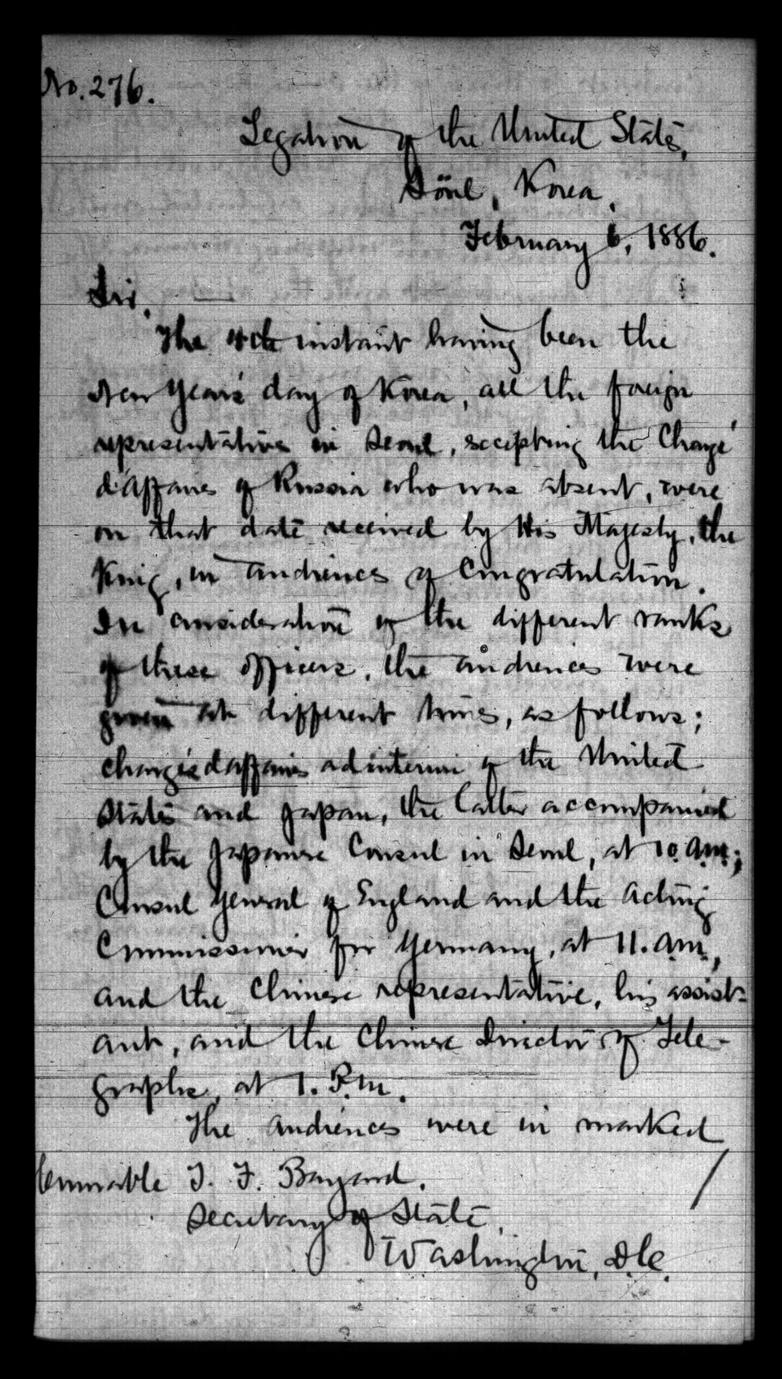 No. 276.
Legation of the United States,
Söul, Korea,
February 6, 1886.
Sir,
The 4th instant having been the
New Year's day of Korea, all the foreign
representatives in Seoul, excepting the Chargé
d'affaires of Russia who was absent, were
on that date received by His Majesty, the
King, in audiences of Congratulation.
In consideration of the different ranks
of these officers, the audiences were
given at different times, as follows;
chargés d'affaires ad interim of the United
States and Japan, the latter accompanied
by the Japanese Consul in Seoul, at 10. a.m;
Consul General of England and the acting
Commissioner for Germany, at 11. a.m,
and the Chinese representative, his assist-
ant, and the Chinese Director of Tele-
graphs, at 1. P.m.
The audiences were in marked
Honorable T. F. Bayard,
Secretary of State,
Washington, D.C.